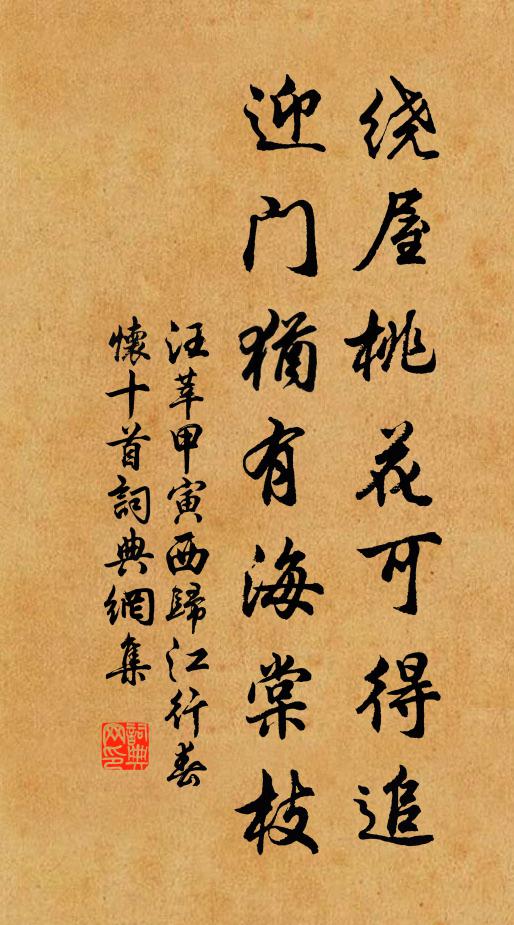 绕屋桃花可得追
迎门犹有海棠枝
汪莘甲寅西歸江行春
懷十首詞典網集
詞典网印